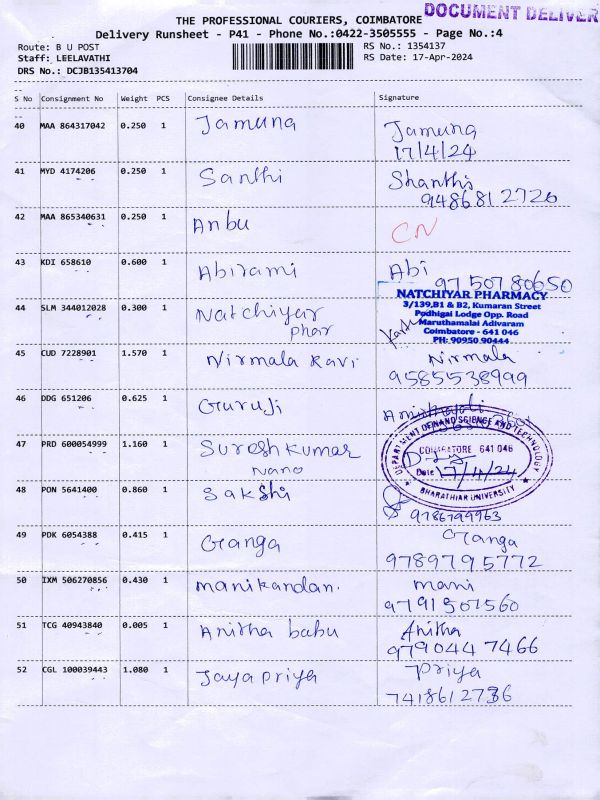 DOCUMENT DELIVER
THE PROFESSIONAL COURIERS, COIMBATORE
Delivery Runsheet - P41 - Phone No.:0422-3505555 - Page No.:4
Route: B U POST
RS No.: 1354137
Staff: LEELAVATHI
RS Date: 17-Apr-2024
DRS No.: DCJB135413704
S No Consignment No Weight PCS Consignee Details Signature
40 MAA 864317042 0.250 1 Jamuna Jamuna
17/4/24
41 MYD 4174206 0.250 1 Santhi Shanthi
9486812726
42 MAA 865340631 0.250 1 Anbu CN
43 KDI 658610 0.600 1 Abirami Abi
9750780650
44 SLM 344012028 0.300 1 Natchiyar
phar
NATCHIYAR PHARMACY
3/139,B1 & B2, Kumaran Street
Podhigai Lodge Opp. Road
Maruthamalai Adivaram
Coimbatore - 641 046
PH: 90950 90444
45 CUD 7228901 1.570 1 Nirmala Ravi Nirmala
9585538999
46 DDG 651206 0.625 1 Guruji
47 PRD 600054999 1.160 1 Suresh Kumar
Nano
DEPARTMENT OF NANO SCIENCE AND TECHNOLOGY
COIMBATORE 641 046
Date 17/4/24
BHARATHIAR UNIVERSITY
48 PON 5641400 0.860 1 Sakshi
9786799963
49 PDK 6054388 0.415 1 Ganga Ganga
9789795772
50 IXM 506270856 0.430 1 Manikandan. Mani
9791507560
51 TCG 40943840 0.005 1 Anitha babu Anitha
9790447466
52 CGL 100039443 1.080 1 Jayapriya Priya
7418612736